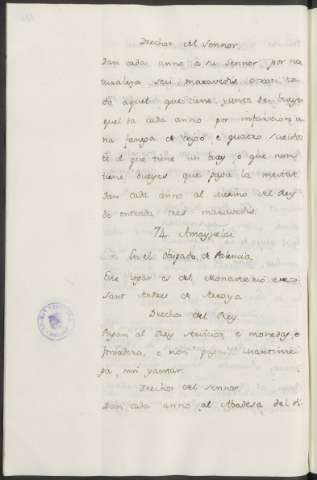 Drechos del Sennor.
Dan cada anno a su Sennor por na
turaleza seis maravedis
da aquel que tiene yunta de bueys
quel da cada anno por infurcion u
na fanega de trigo e quatro sueldos
e el que tiene un buy o que non
tiene bueyes que paga la meitat
Dan cada anno al Merino del Rey
de entrada tres maravedis.
74. Amayuelas
En el Obispado de Palencia.
Este logar es del Monasterio
Sant Andres de Arroya
Drechos del Rey.
Pagan al Rey servicios e monedas e
fonsadera, e non pagan martinie
ga, nin yantar.
Drechos del Sennor.
Dan cada anno al Abadesa del di